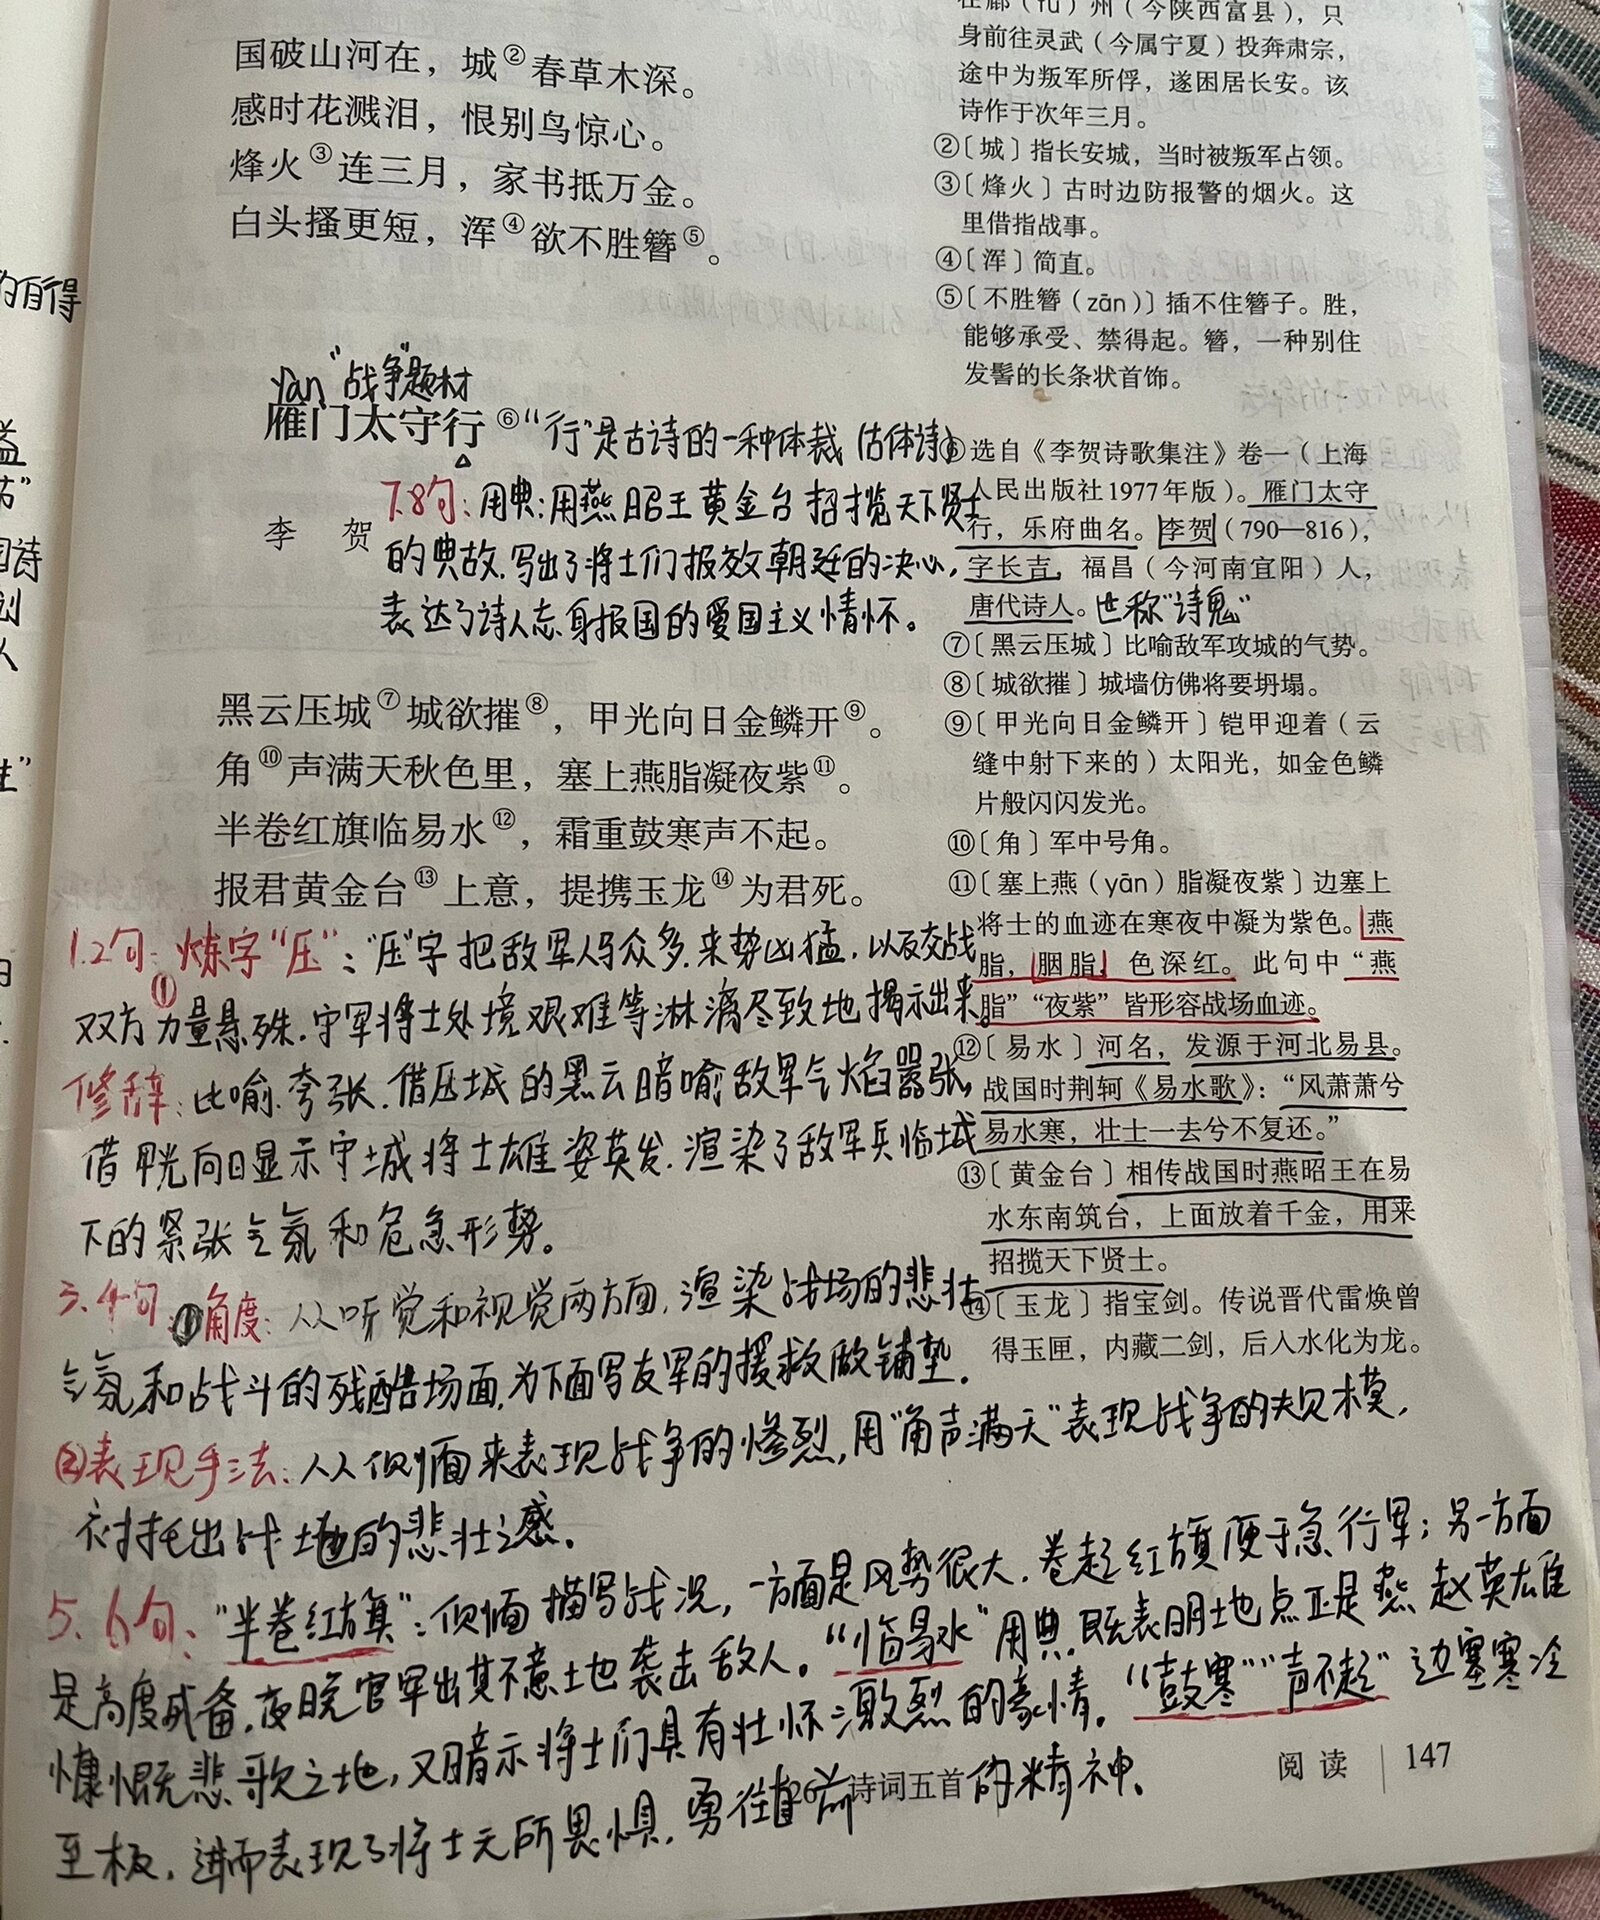 国破山河在，城②春草木深。
感时花溅泪，恨别鸟惊心。
烽火③连三月，家书抵万金。
白头搔更短，浑④欲不胜簪⑤。
yàn "战争"题材
雁门太守行⑥"行"是古诗的一种体裁（古体诗）
李 贺
7.8句：用典：用燕昭王黄金台招揽天下贤士
的典故，写出了将士们报效朝廷的决心，
表达了诗人忘身报国的爱国主义情怀。
黑云压城⑦城欲摧⑧，甲光向日金鳞开⑨。
角⑩声满天秋色里，塞上燕脂凝夜紫⑪。
半卷红旗临易水⑫，霜重鼓寒声不起。
报君黄金台⑬上意，提携玉龙⑭为君死。
1.2句：①炼字"压"："压"字把敌军人马众多，来势凶猛，以及交战
双方力量悬殊，守军将士处境艰难等淋漓尽致地揭示出来。
修辞：比喻、夸张，借压城的黑云暗喻敌军气焰嚣张，
借甲光向日显示守城将士雄姿英发，渲染了敌军兵临城
下的紧张气氛和危急形势。
3.4句：①角度：从听觉和视觉两方面，渲染战场的悲壮
气氛和战斗的残酷场面，为下面写友军的援救做铺垫。
②表现手法：从侧面来表现战争的惨烈，用"角声满天"表现战争的规模，
衬托出战地的悲壮之感。
5.6句："半卷红旗"：侧面描写战况，一方面是风势很大，卷起红旗便于急行军；另一方面
是高度戒备，夜晚官军出其不意土地袭击敌人。"临易水"用典，既表明地点正是燕赵英雄
慷慨悲歌之地，又暗示将士们具有壮怀激烈的豪情。"鼓寒""声不起"边塞寒冷
至极，进而表现了将士无所畏惧，勇往直前的精神。
在鄜（fū）州（今陕西富县），只
身前往灵武（今属宁夏）投奔肃宗，
途中为叛军所俘，遂困居长安。该
诗作于次年三月。
②〔城〕指长安城，当时被叛军占领。
③〔烽火〕古时边防报警的烟火。这
里借指战事。
④〔浑〕简直。
⑤〔不胜簪（zān）〕插不住簪子。胜，
能够承受、禁得起。簪，一种别住
发髻的长条状首饰。
⑥选自《李贺诗歌集注》卷一（上海
人民出版社1977年版）。雁门太守
行，乐府曲名。李贺（790—816），
字长吉，福昌（今河南宜阳）人，
唐代诗人。世称"诗鬼"
⑦〔黑云压城〕比喻敌军攻城的气势。
⑧〔城欲摧〕城墙仿佛将要坍塌。
⑨〔甲光向日金鳞开〕铠甲迎着（云
缝中射下来的）太阳光，如金色鳞
片般闪闪发光。
⑩〔角〕军中号角。
⑪〔塞上燕（yān）脂凝夜紫〕边塞上
将士的血迹在寒夜中凝为紫色。燕
脂，胭脂，色深红。此句中"燕
脂""夜紫"皆形容战场血迹。
⑫〔易水〕河名，发源于河北易县。
战国时荆轲《易水歌》："风萧萧兮
易水寒，壮士一去兮不复还。"
⑬〔黄金台〕相传战国时燕昭王在易
水东南筑台，上面放着千金，用来
招揽天下贤士。
⑭〔玉龙〕指宝剑。传说晋代雷焕曾
得玉匣，内藏二剑，后入水化为龙。
26 诗词五首
阅读 147
的自得
益
"
诗